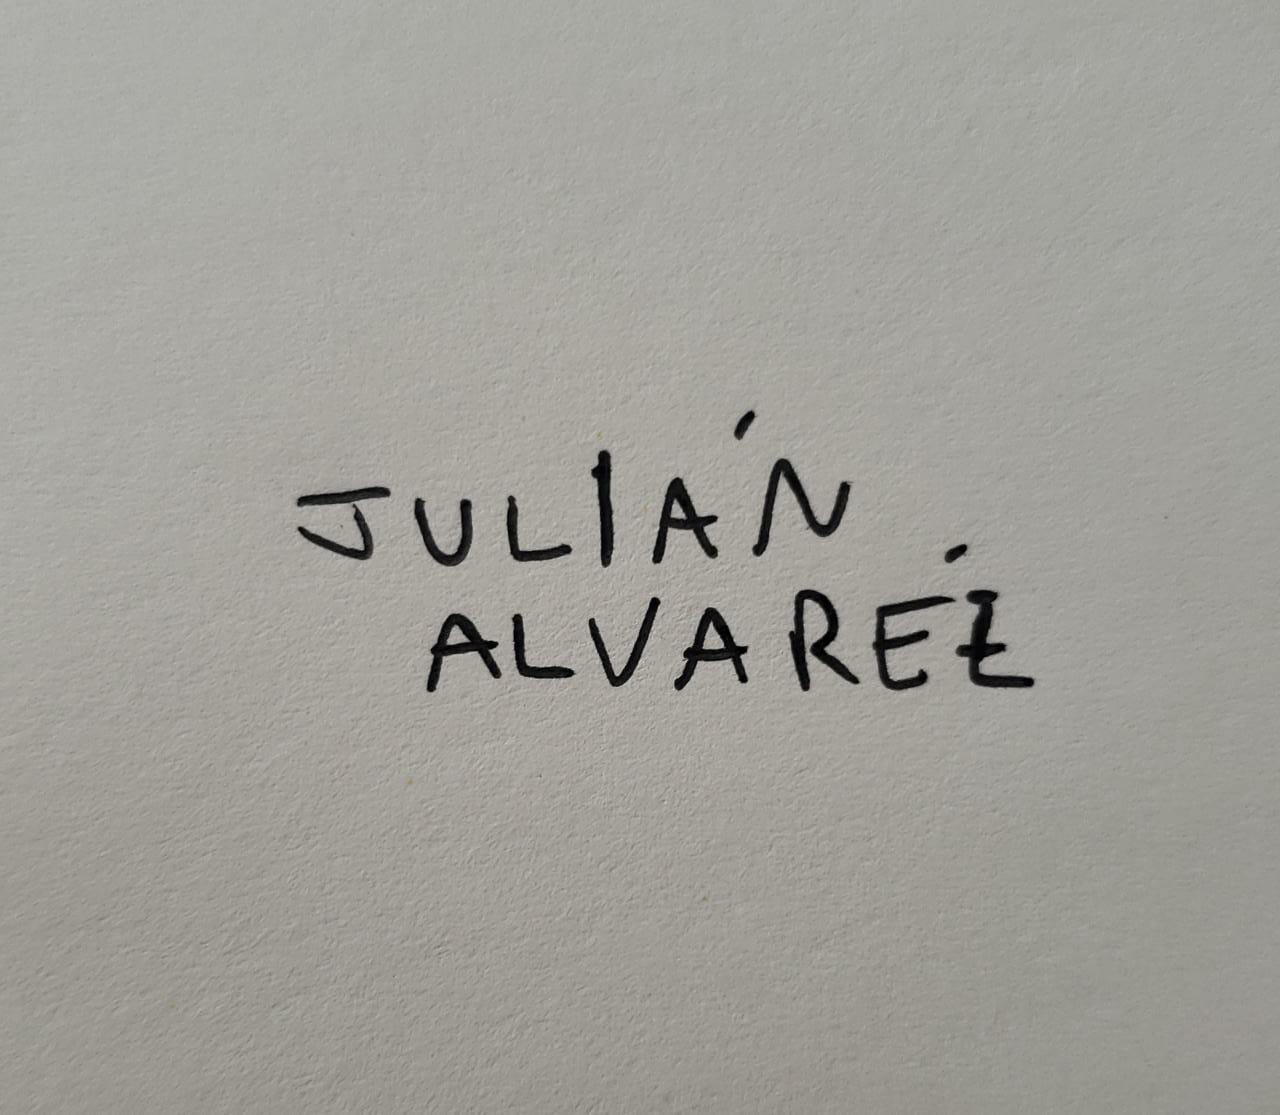 JULIÁN
ALVAREŹ